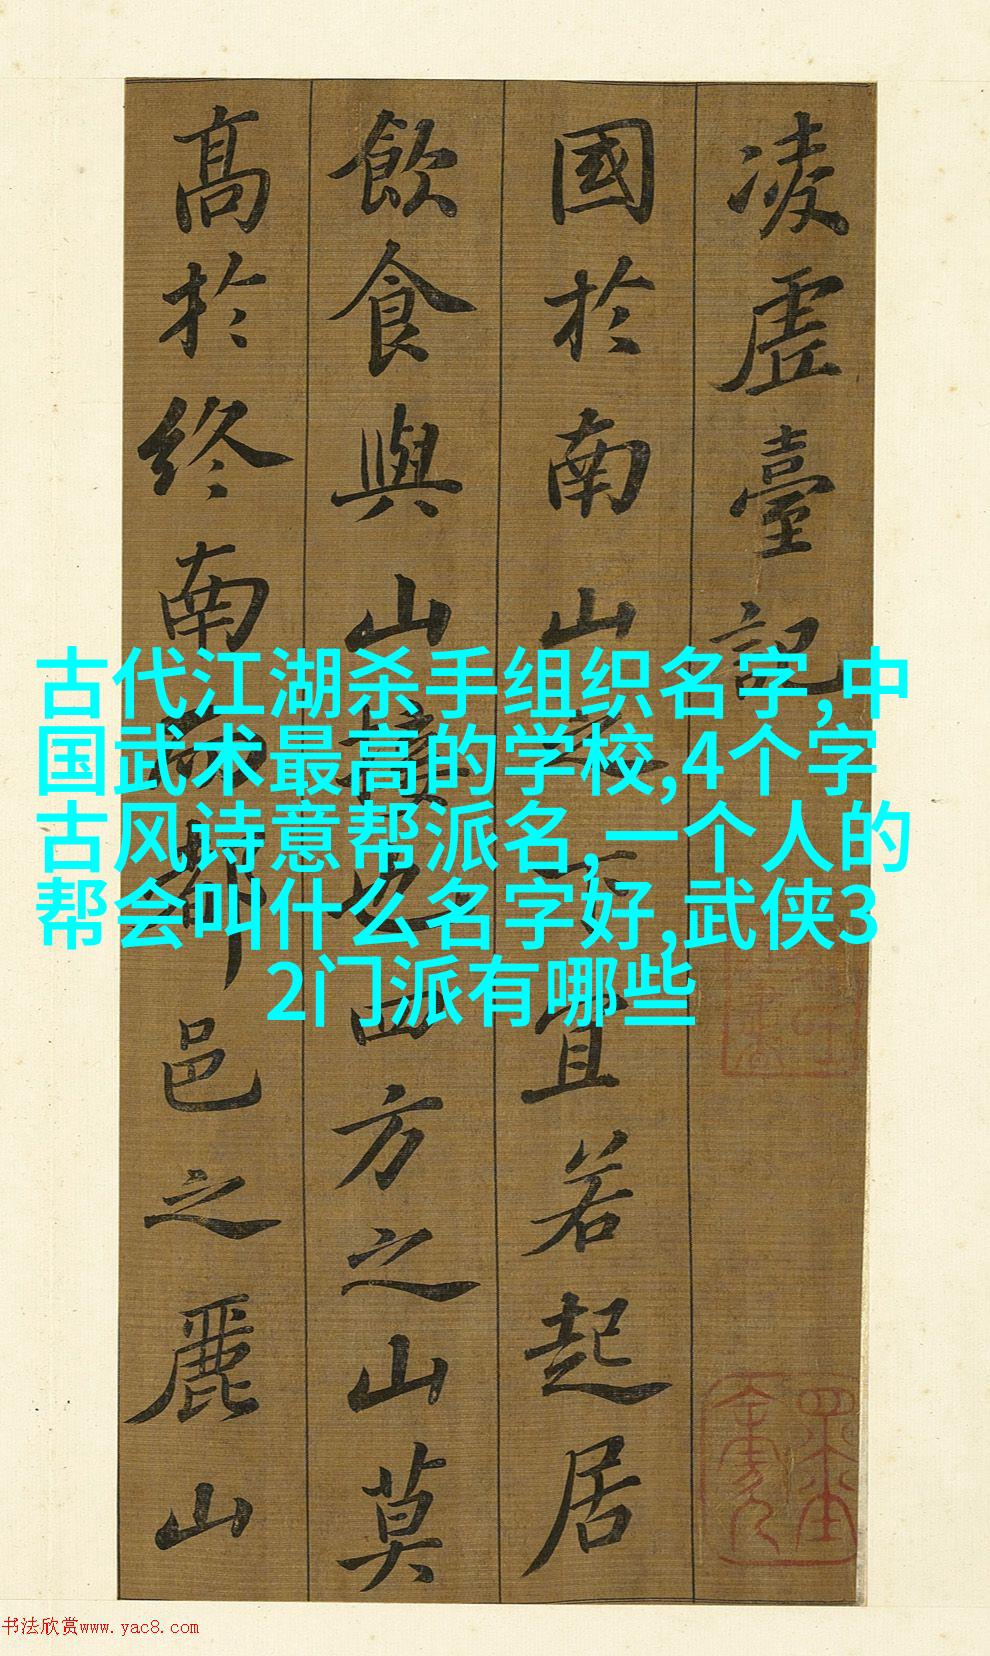 凌虛臺記
國於南山之下宜若起居
飲食與山接也四方之山莫
高於終南而都邑之麗山
古代江湖杀手组织名字,中
国武术最高的学校,4个字
古风诗意帮派名,一个人的
帮会叫什么名字好,武侠3
2门派有哪些
书法欣赏www.yac8.com